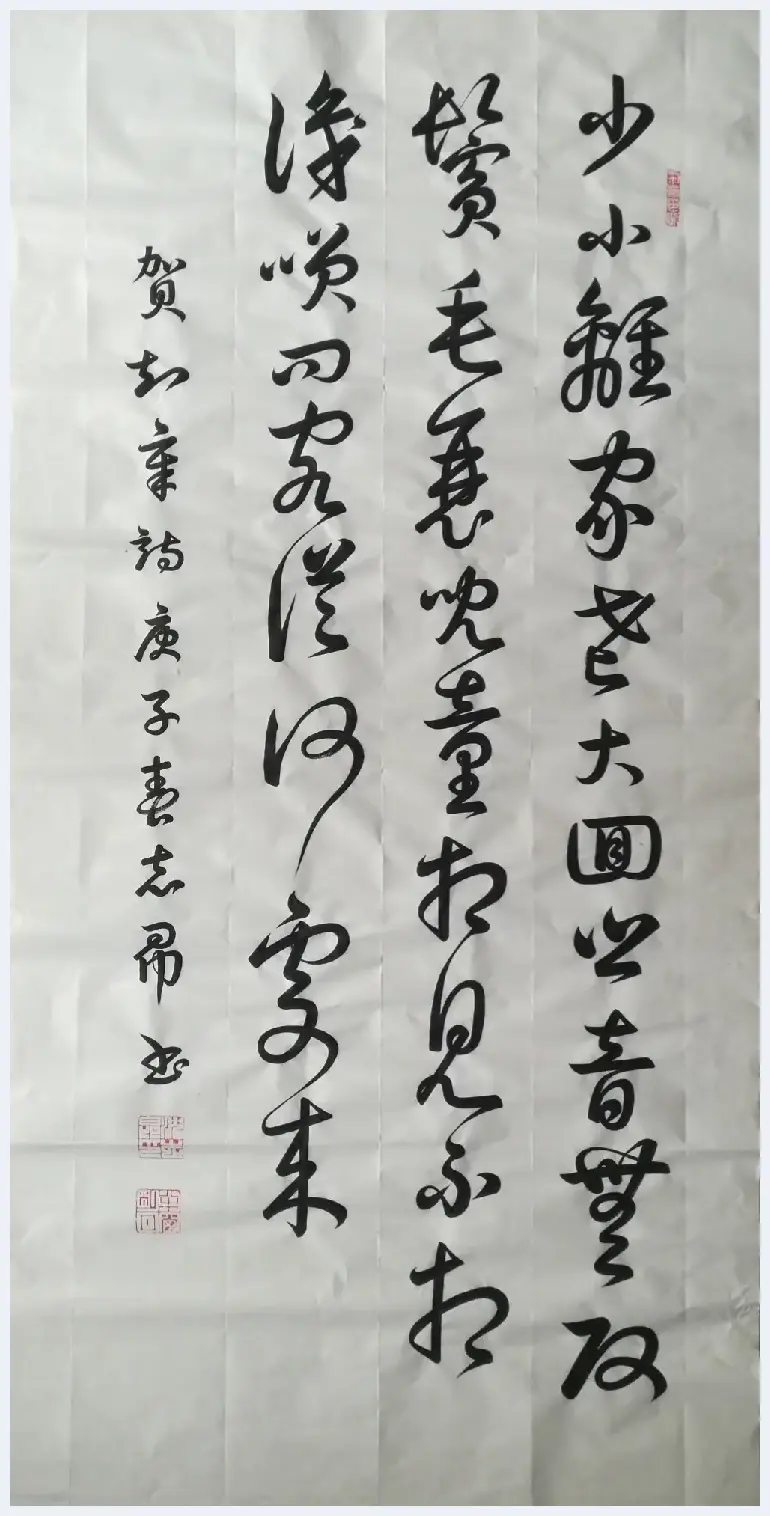 少小離家老大囬鄉音無改
鬢毛衰兒童相見不相
識咲問客從何處來
賀知章詩庚子春志書